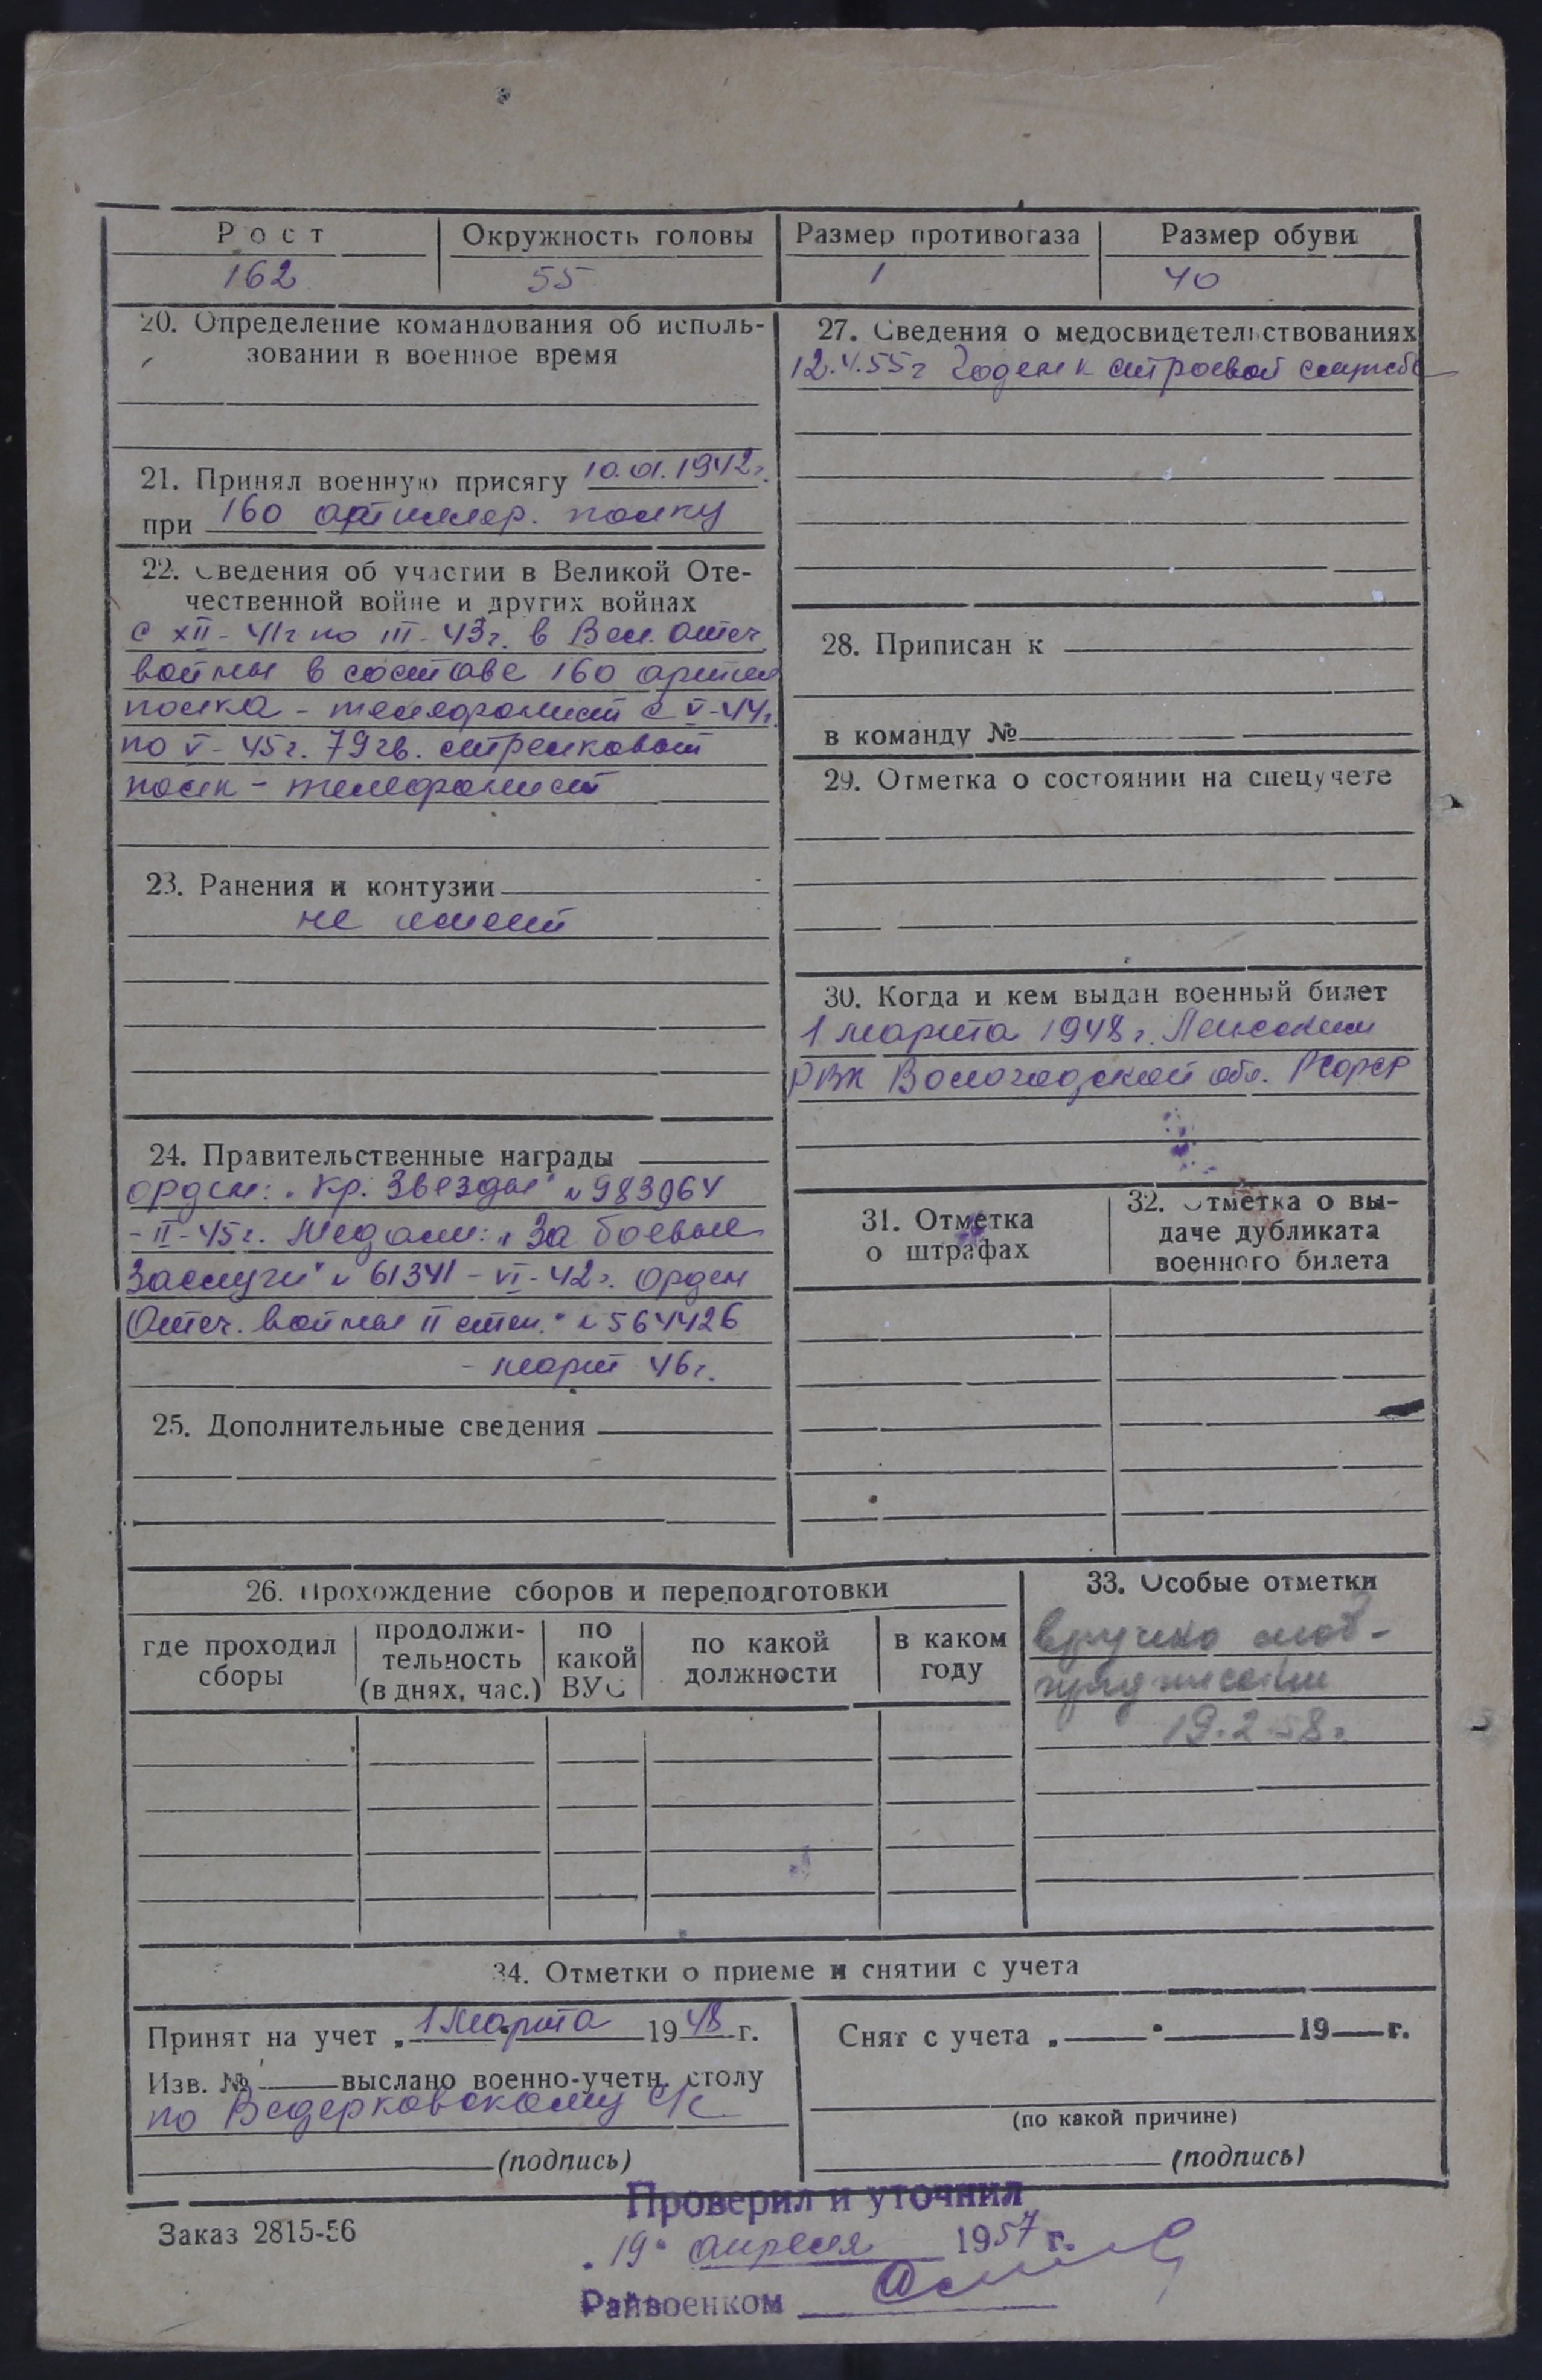 Рост
Окружность головы
Размер противогаза
Размер обуви
162
55
1
40
20. Определение командования об исполь-
зовании в военное время
21. Принял военную присягу 10.01.1942г.
при 160 артиллер. полку
22. Сведения об участии в Великой Оте-
чественной войне и других войнах
с XII-41г по III-43г. в Вел. Отеч.
войны в составе 160 артил
полка - телефонист с V-44г.
по V-45г. 79 гв. стрелковый
полк - телефонист
23. Ранения и контузии
не имеет
24. Правительственные награды
орден: "Кр. Звезды" N 983964
- II-45г. Медали: "За боевые
Заслуги" N 61341 - VI-42г. Орден
Отеч. войны II степ." N 564426
- март 46г.
25. Дополнительные сведения
27. Сведения о медосвидетельствованиях
12.4.55г Годен к строевой службе
28. Приписан к
в команду №
29. Отметка о состоянии на спецучете
30. Когда и кем выдан военный билет
1 марта 1948г.
РВК Вологодской обл. РСФСР
31. Отметка
о штрафах
32. Отметка о вы-
даче дубликата
военного билета
26. Прохождение сборов и переподготовки
где проходил
сборы
продолжи-
тельность
(в днях, час.)
по
какой
ВУС
по какой
должности
в каком
году
33. Особые отметки
вручено моб-
предписание
19.2.58г.
34. Отметки о приеме и снятии с учета
Принят на учет „1 марта 1948 г.
Изв. № выслано военно-учетн. столу
по Ведерковскому с/с
(подпись)
Снят с учета „ " 19 г.
(по какой причине)
(подпись)
Заказ 2815-56
Проверил и уточнил
"19" апреля 1957 г.
Райвоенком